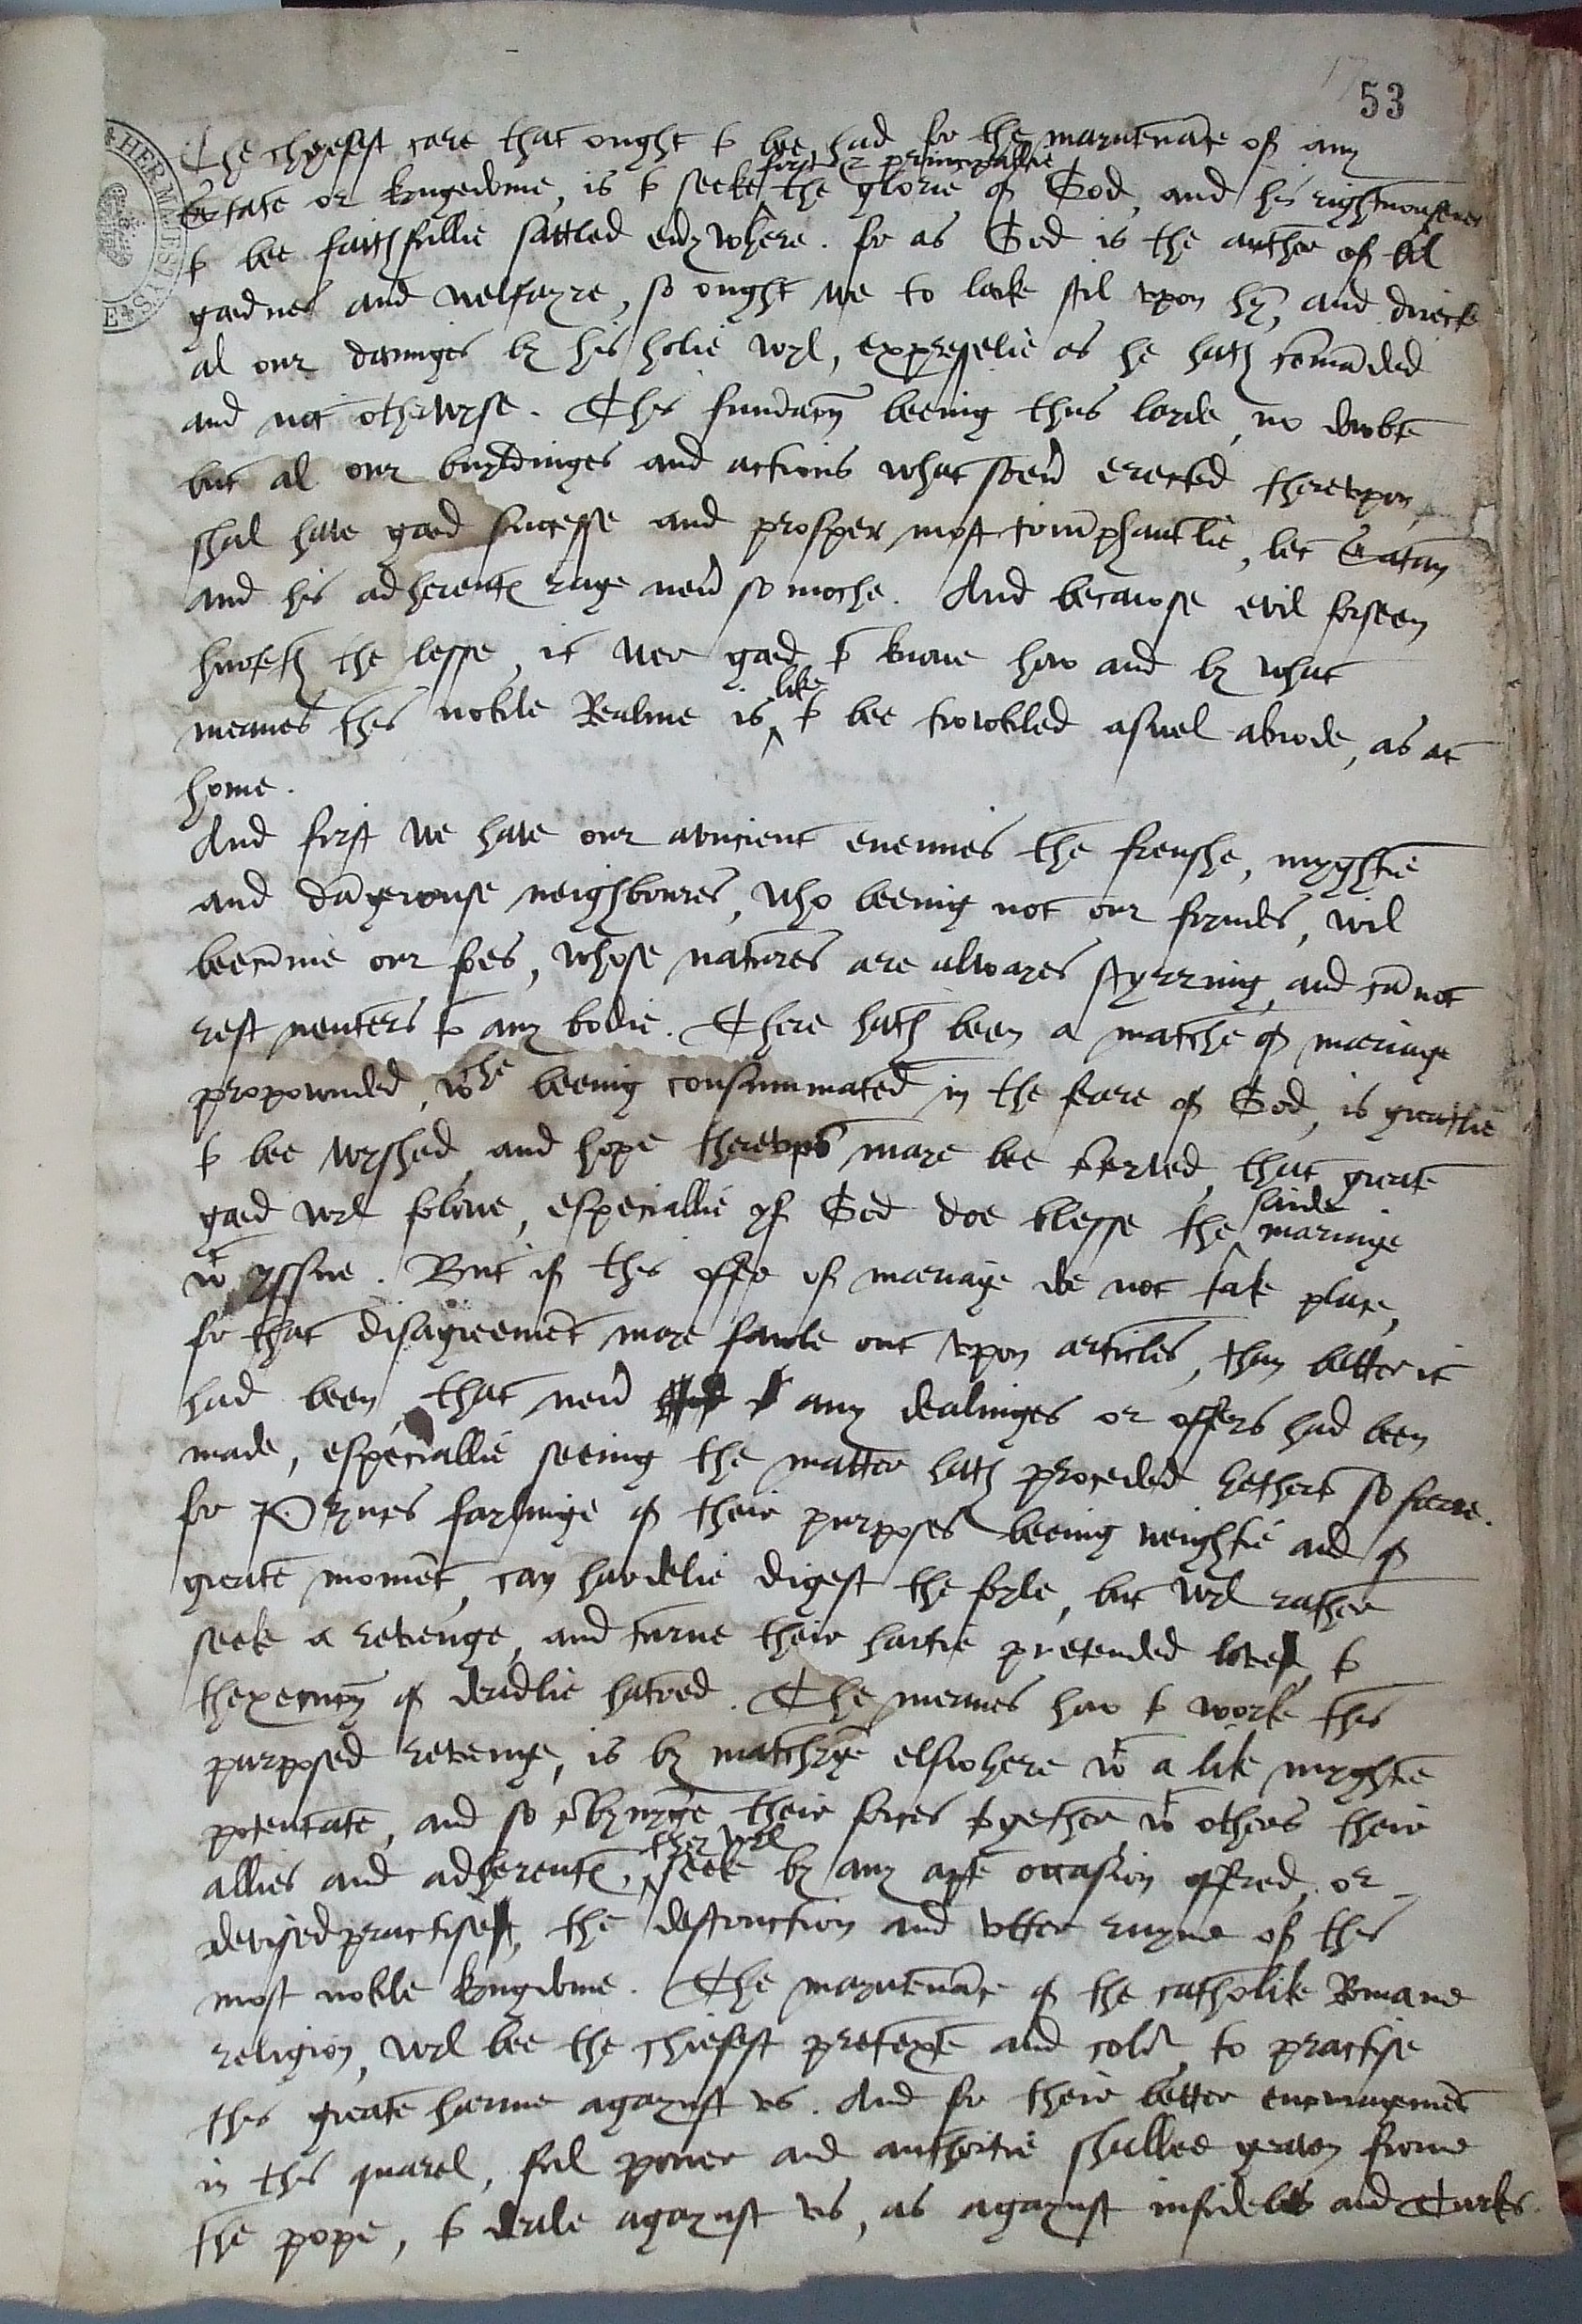 53
The chyefest care that ought to bee had for the mayntenāce of any
Estate or kyngedome, is to seeke first & principallie the glorie of God, and his rightuousnes
to bee faithfullie sattled eūywhere. for as God is the author of al
goodnes and welfayre, so ought we to looke stil vpon hȳ, and directe
al our dooinges by his holie wyl, expresselie as he hath cōmāded
and not otherwyse. This fundacōn beeing thus layde, no doubte
but al our buyldinges and actions whatsoeū erected therevpon,
shal have good successe and prosper most triumphantlie, let Satan
and his adherents rage neū so moche. And becawse evil forseen
hurteth the lesse, it wer good to knowe how and by what
meanes this noble Realme is like to bee trowbled aswel abrode, as at
home.
And first we have our auncient enemies the frenshe, myghtie
and dāgerouse neighboures, who beeing not our fryndes, wil
becūme our foes, whose natures are alwayes styrring, and cānot
rest neuters to any bodie. There hath been a matche of mariage
propownded, wche beeing consummated in the feare of God, is greatlie
to bee wyshed, and hope therevpō maye bee
that greate
good wyl folowe, especiallie yf God doe blesse the saide mariage
wt yssue. But if this offer of mariage doe not take place,
for that disagreemēt maye faule out vpon articles, than better it
had been, that neū any dealinges or offers had been
made, especiallie seeing the matter hath proceded hetherto so farre.
for Prynces faylinge of their purposes beeing weightie and of
greate momēt, can hardelie digest the foyle, but wyl rather
seek a revenge, and turne their hartie pretended love, to
thexecucōn of deadlie hatred. The meanes how to work this
purposed revenge, is by matchyge elswhere wt a like myghtie
potentate, and so cōbynyge their forces together wt others their
allies and adherents, they wyl seek by any apte occasion offred, or
devised practise, the destruction and vtter ruyne of this
most noble kyngdome. The mayntenāce of the catholike Romane
religion, wyl bee the chiefest pretexte and color, to practise
this greate harme agaynst vs. And for their better encouragemēt
in this quarel, ful power and authoritie shalbee geaven frome
the pope, to deale agaynst vs, as agaynst infidels and Turks.